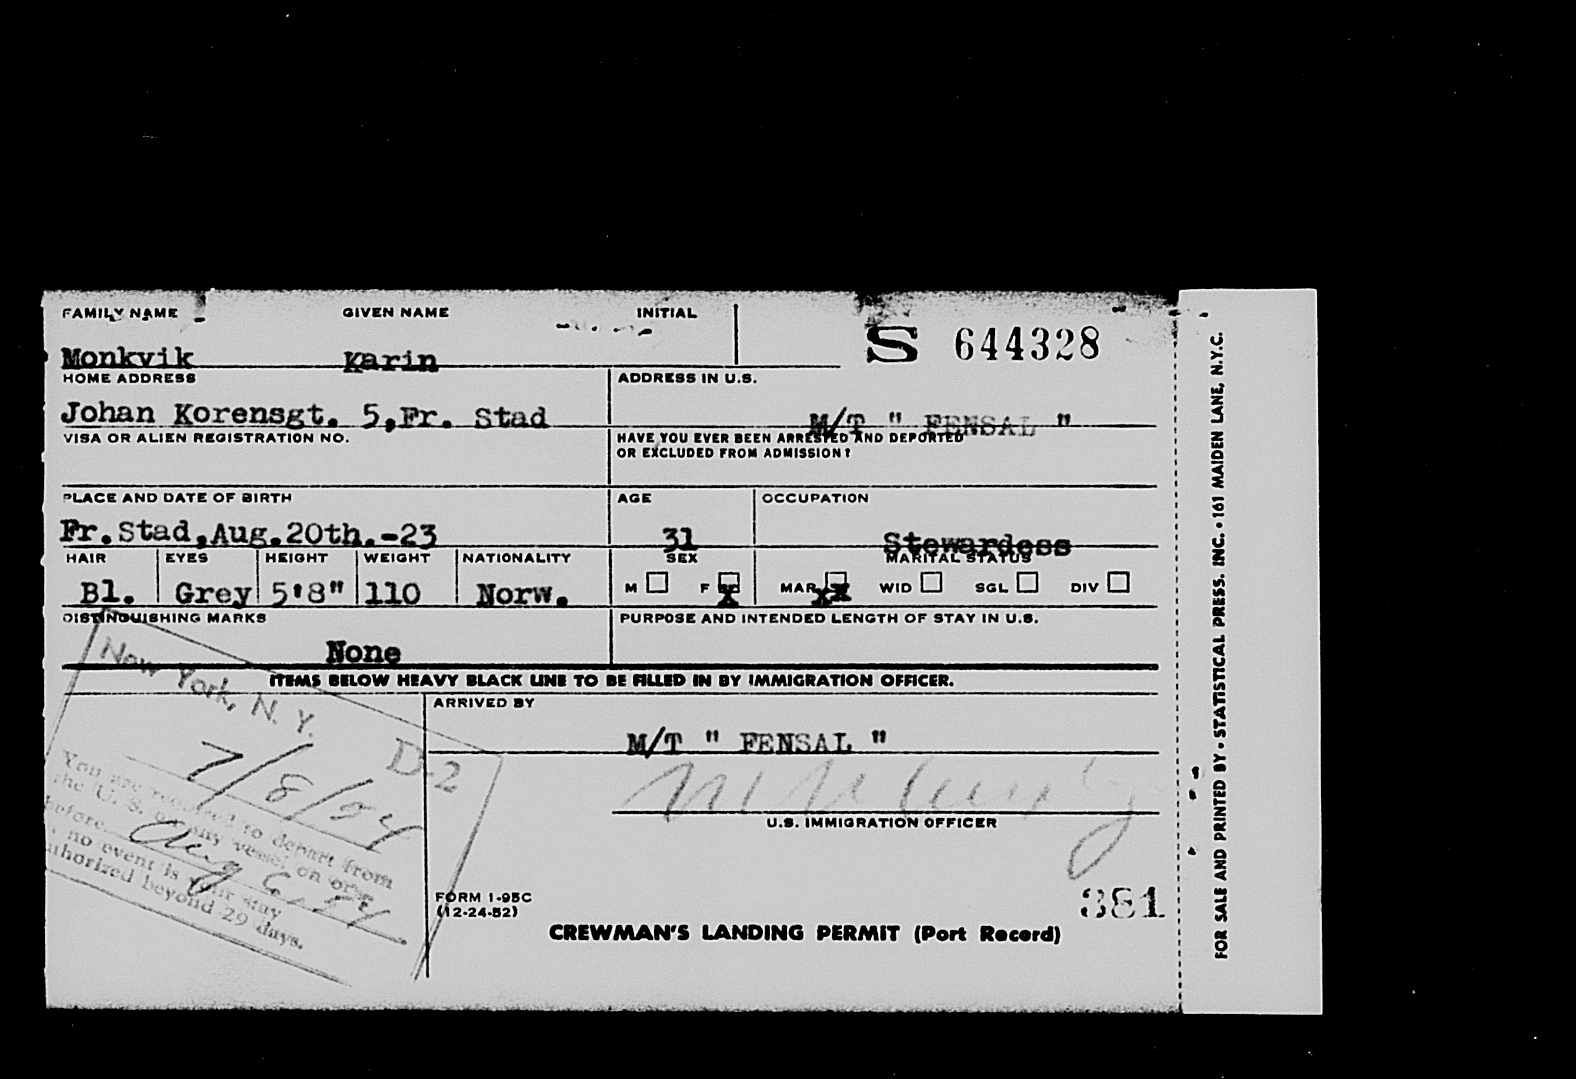 FAMILY NAME GIVEN NAME INITIAL
S 644328
Monkvik Karin
HOME ADDRESS ADDRESS IN U.S.
Johan Korensgt. 5,Fr. Stad M/T " FENSAL "
VISA OR ALIEN REGISTRATION NO. HAVE YOU EVER BEEN ARRESTED AND DEPORTED
OR EXCLUDED FROM ADMISSION?
PLACE AND DATE OF BIRTH AGE OCCUPATION
Fr.Stad,Aug.20th.-23 31 Stewardess
HAIR EYES HEIGHT WEIGHT NATIONALITY SEX MARITAL STATUS
Bl. Grey 5'8" 110 Norw. M F X MAR xx WID SGL DIV
DISTINGUISHING MARKS PURPOSE AND INTENDED LENGTH OF STAY IN U.S.
None
ITEMS BELOW HEAVY BLACK LINE TO BE FILLED IN BY IMMIGRATION OFFICER.
ARRIVED BY
M/T " FENSAL "
U.S. IMMIGRATION OFFICER
New York, N. Y.
D-2
7/8/54
You are required to depart from
the U. S. on any vessel on or
before Aug 6, 54
no event is your stay
authorized beyond 29 days.
FORM 1-95C
(12-24-52)
381
CREWMAN'S LANDING PERMIT (Port Record)
FOR SALE AND PRINTED BY • STATISTICAL PRESS. INC. • 161 MAIDEN LANE, N.Y.C.